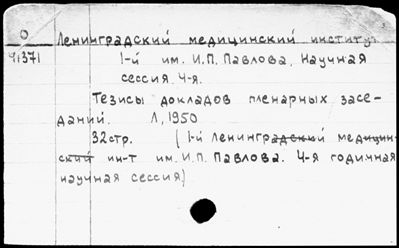 О Ленинградский медицинский институт
41371 1-й им. И.П. Павлова. Научная
сессия. 4-я.
Тезисы докладов пленарных засе-
даний. Л, 1950
32стр. (1-й Ленинградский медицин-
ский ин-т им. И.П. Павлова. 4-я годичная
научная сессия)